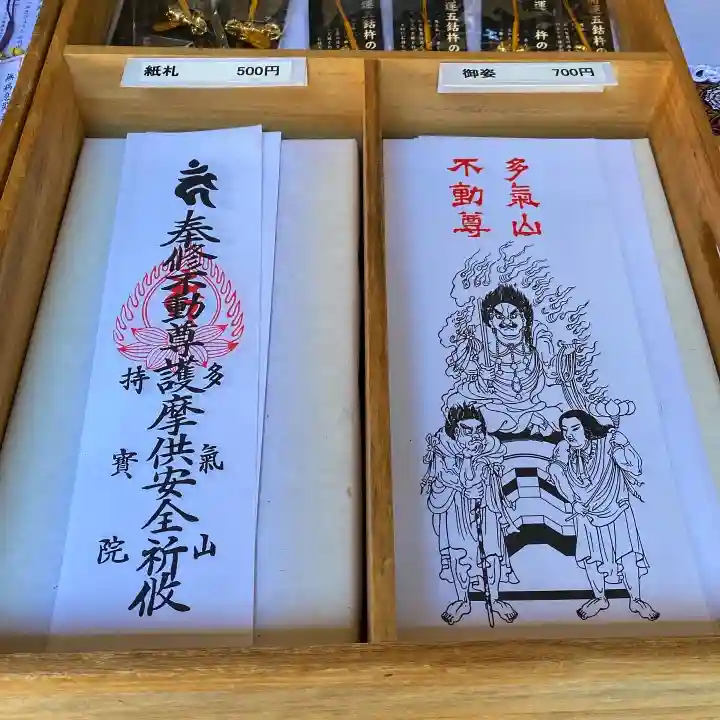 紙札 500円
御姿 700円
奉修不動尊護摩供安全祈攸
多氣山
持寳院
多氣山
不動尊